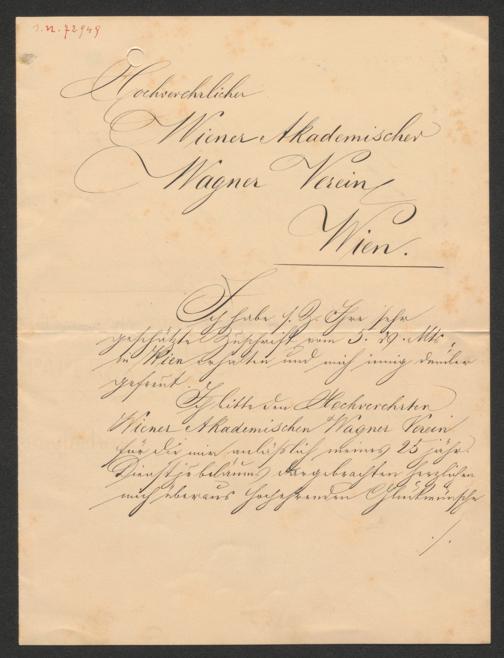 I.N. 72949
Hochverehrlicher
Wiener Akademischer
Wagner Verein
Wien.
Ich habe s. Z. Ihre sehr
geschätzte Zuschrift vom 5. d. Mts.
in Wien erhalten und mich innig darüber
gefreut.
Ich bitte den Hochverehrten
Wiener Akademischen Wagner Verein
für die mir anläßlich meines 25 jähr.
Dienstjubiläums dargebrachten herzlichen
mich überaus hochehrenden Glückwünsche
./.